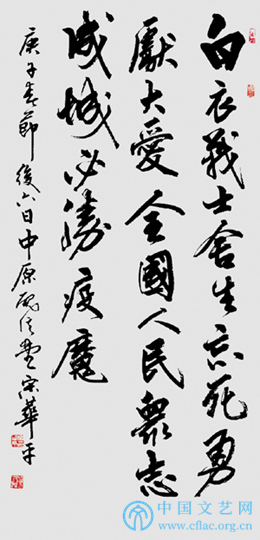 白衣义士舍生忘死勇
獻大愛全國人民眾志
成城必勝疫魔
庚子春節後六日中原
宗華平
中国文艺网
www.cflac.org.cn